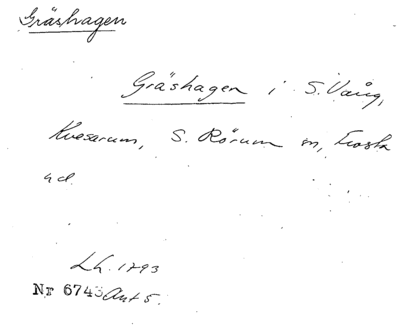 Gräshagen
Gräshagen i S. Vång,
Kvesarum, S. Rörum sn, Frosta
hd.
Lh. 1793
Nr 6743 Ant 5.